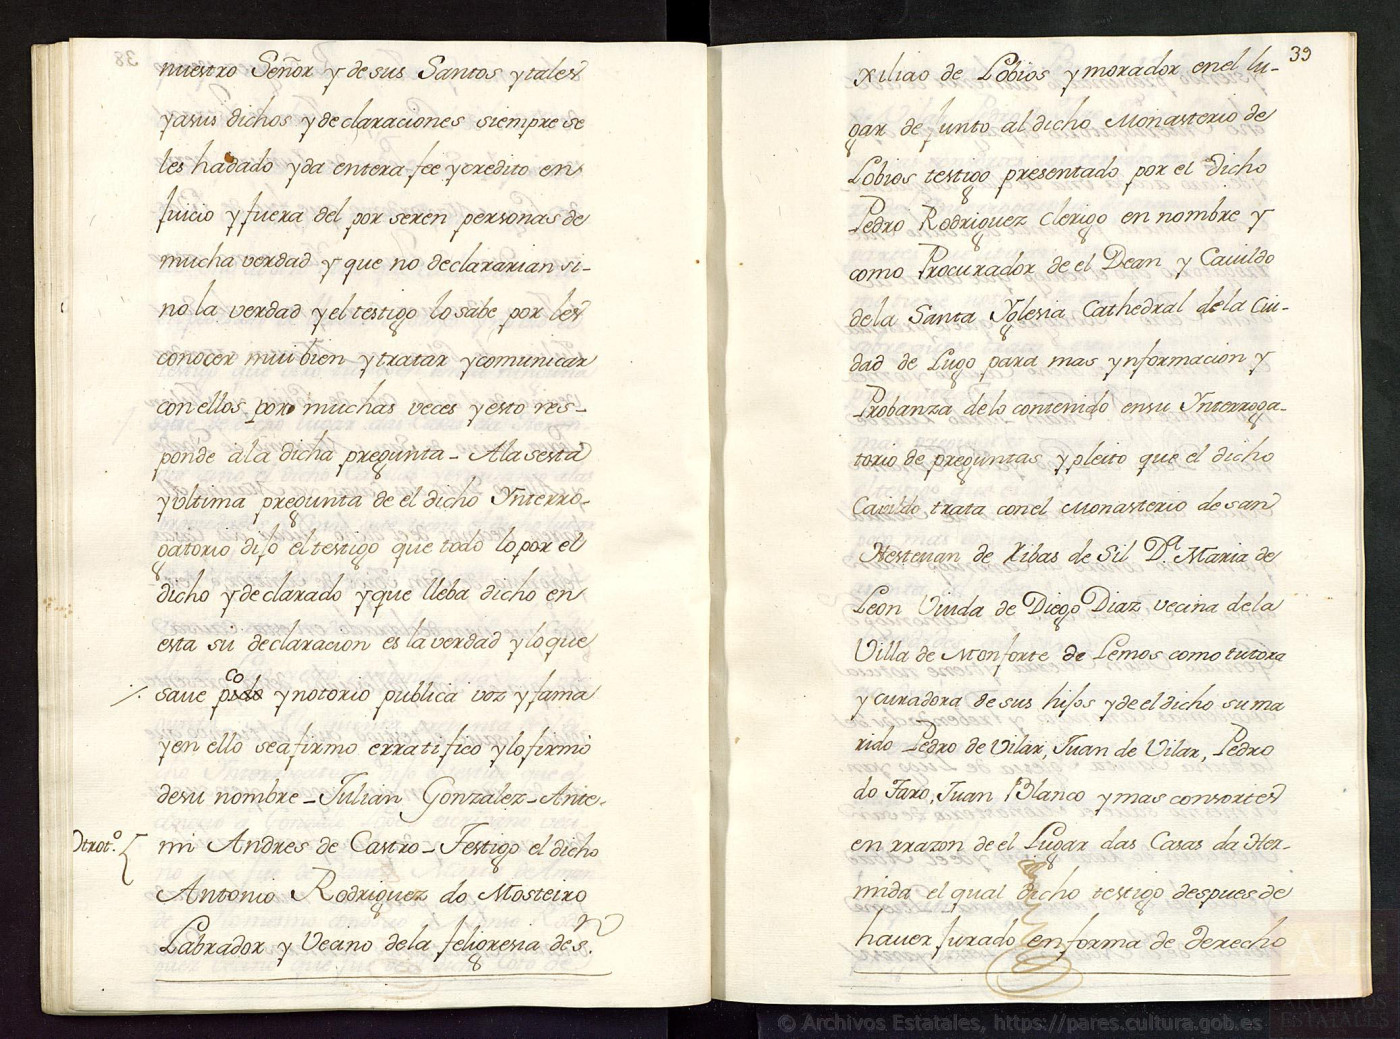 nuestro Señor y de sus Santos y tales
y a sus dichos y declaraciones siempre se
les ha dado y da entera fee y credito en
Juicio y fuera del por seren personas de
mucha verdad y que no declararian si-
no la verdad y el testigo lo sabe por les
conocer mui bien y tratar y comunicar
con ellos por muchas veces y esto res-
ponde a la dicha pregunta - A la sesta
y vltima pregunta de el dicho Ynterro-
gatorio dijo el testigo que todo lo por el
dicho y declarado y que lleba dicho en
esta su declaracion es la verdad y lo que
saue pco y notorio publica voz y fama
y en ello se afirmo e rratifico y lo firmó
de su nombre - Julian Gonzalez - Ante-
Otrot.º { mi Andres de Castro - Testigo el dicho
Antonio Rodriguez do Mosteiro
Labrador y Vecino de la feligresia de S.n
39
Xiliao de Lobios y morador en el lu-
gar de junto al dicho Monasterio de
Lobios testigo presentado por el dicho
Pedro Rodriguez clerigo en nombre y
como Procurador de el Dean y Cauildo
de la Santa Yglesia Cathedral de la Ciu-
dad de Lugo para mas ynformacion y
Probanza de lo contenido en su Ynterroga-
torio de preguntas y pleito que el dicho
Cauildo trata con el Monasterio de san
Hesteuan de Ribas de Sil D.ª Maria de
Leon Viuda de Diego Diaz vecina de la
Villa de Monforte de Lemos como tutora
y curadora de sus hijos y de el dicho su ma
rido Pedro de Vilar, Juan de Vilar, Pedro
do Faro, Juan Blanco y mas consortes
en rrazon de el Lugar das Casas da Her-
mida el qual dicho testigo despues de
hauer jurado en forma de derecho
© Archivos Estatales, https://pares.cultura.gob.es
ARCHIVOS
ESTATALES